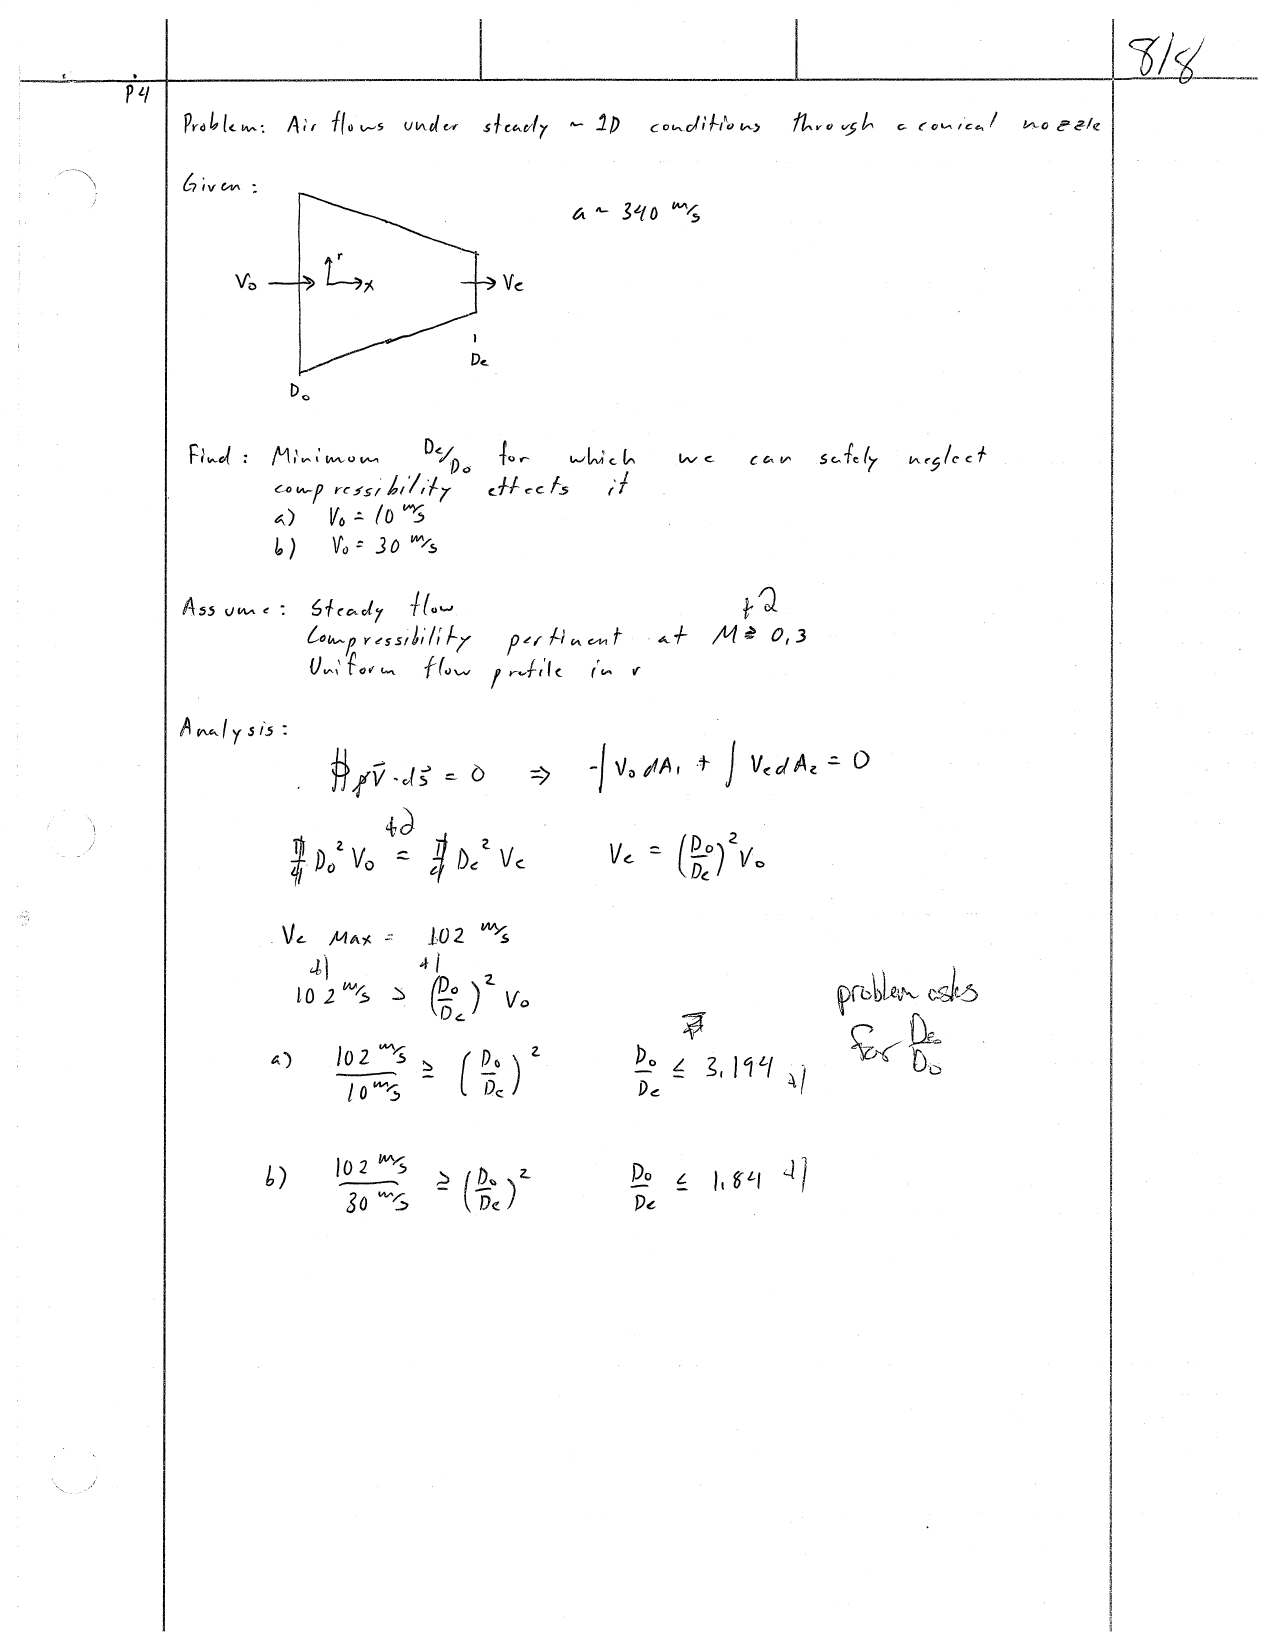 8/8
P4
Problem: Air flows under steady ~ 1D conditions through a conical nozzle
Given:
a ~ 340 m/s
r
V₀ x Ve
De
D₀
Find: Minimum De/D₀ for which we can safely neglect
compressibility effects if
a) V₀ = 10 m/s
b) V₀ = 30 m/s
+2
Assume: Steady flow
Compressibility pertinent at M ≥ 0,3
Uniform flow profile in r
Analysis:
∯ ρV̄·ds̄ = 0 ⇒ -∫V₀dA₁ + ∫VedA₂ = 0
+2
π/4 D₀² V₀ = π/4 De² Ve Ve = (D₀/De)² V₀
Ve Max = 102 m/s
+1 +1
102 m/s > (D₀/De)² V₀
problem asks
for De/D₀
a) 102 m/s / 10 m/s ≥ (D₀/De)² D₀/De ≤ 3.194 +1
b) 102 m/s / 30 m/s ≥ (D₀/De)² D₀/De ≤ 1.84 +1